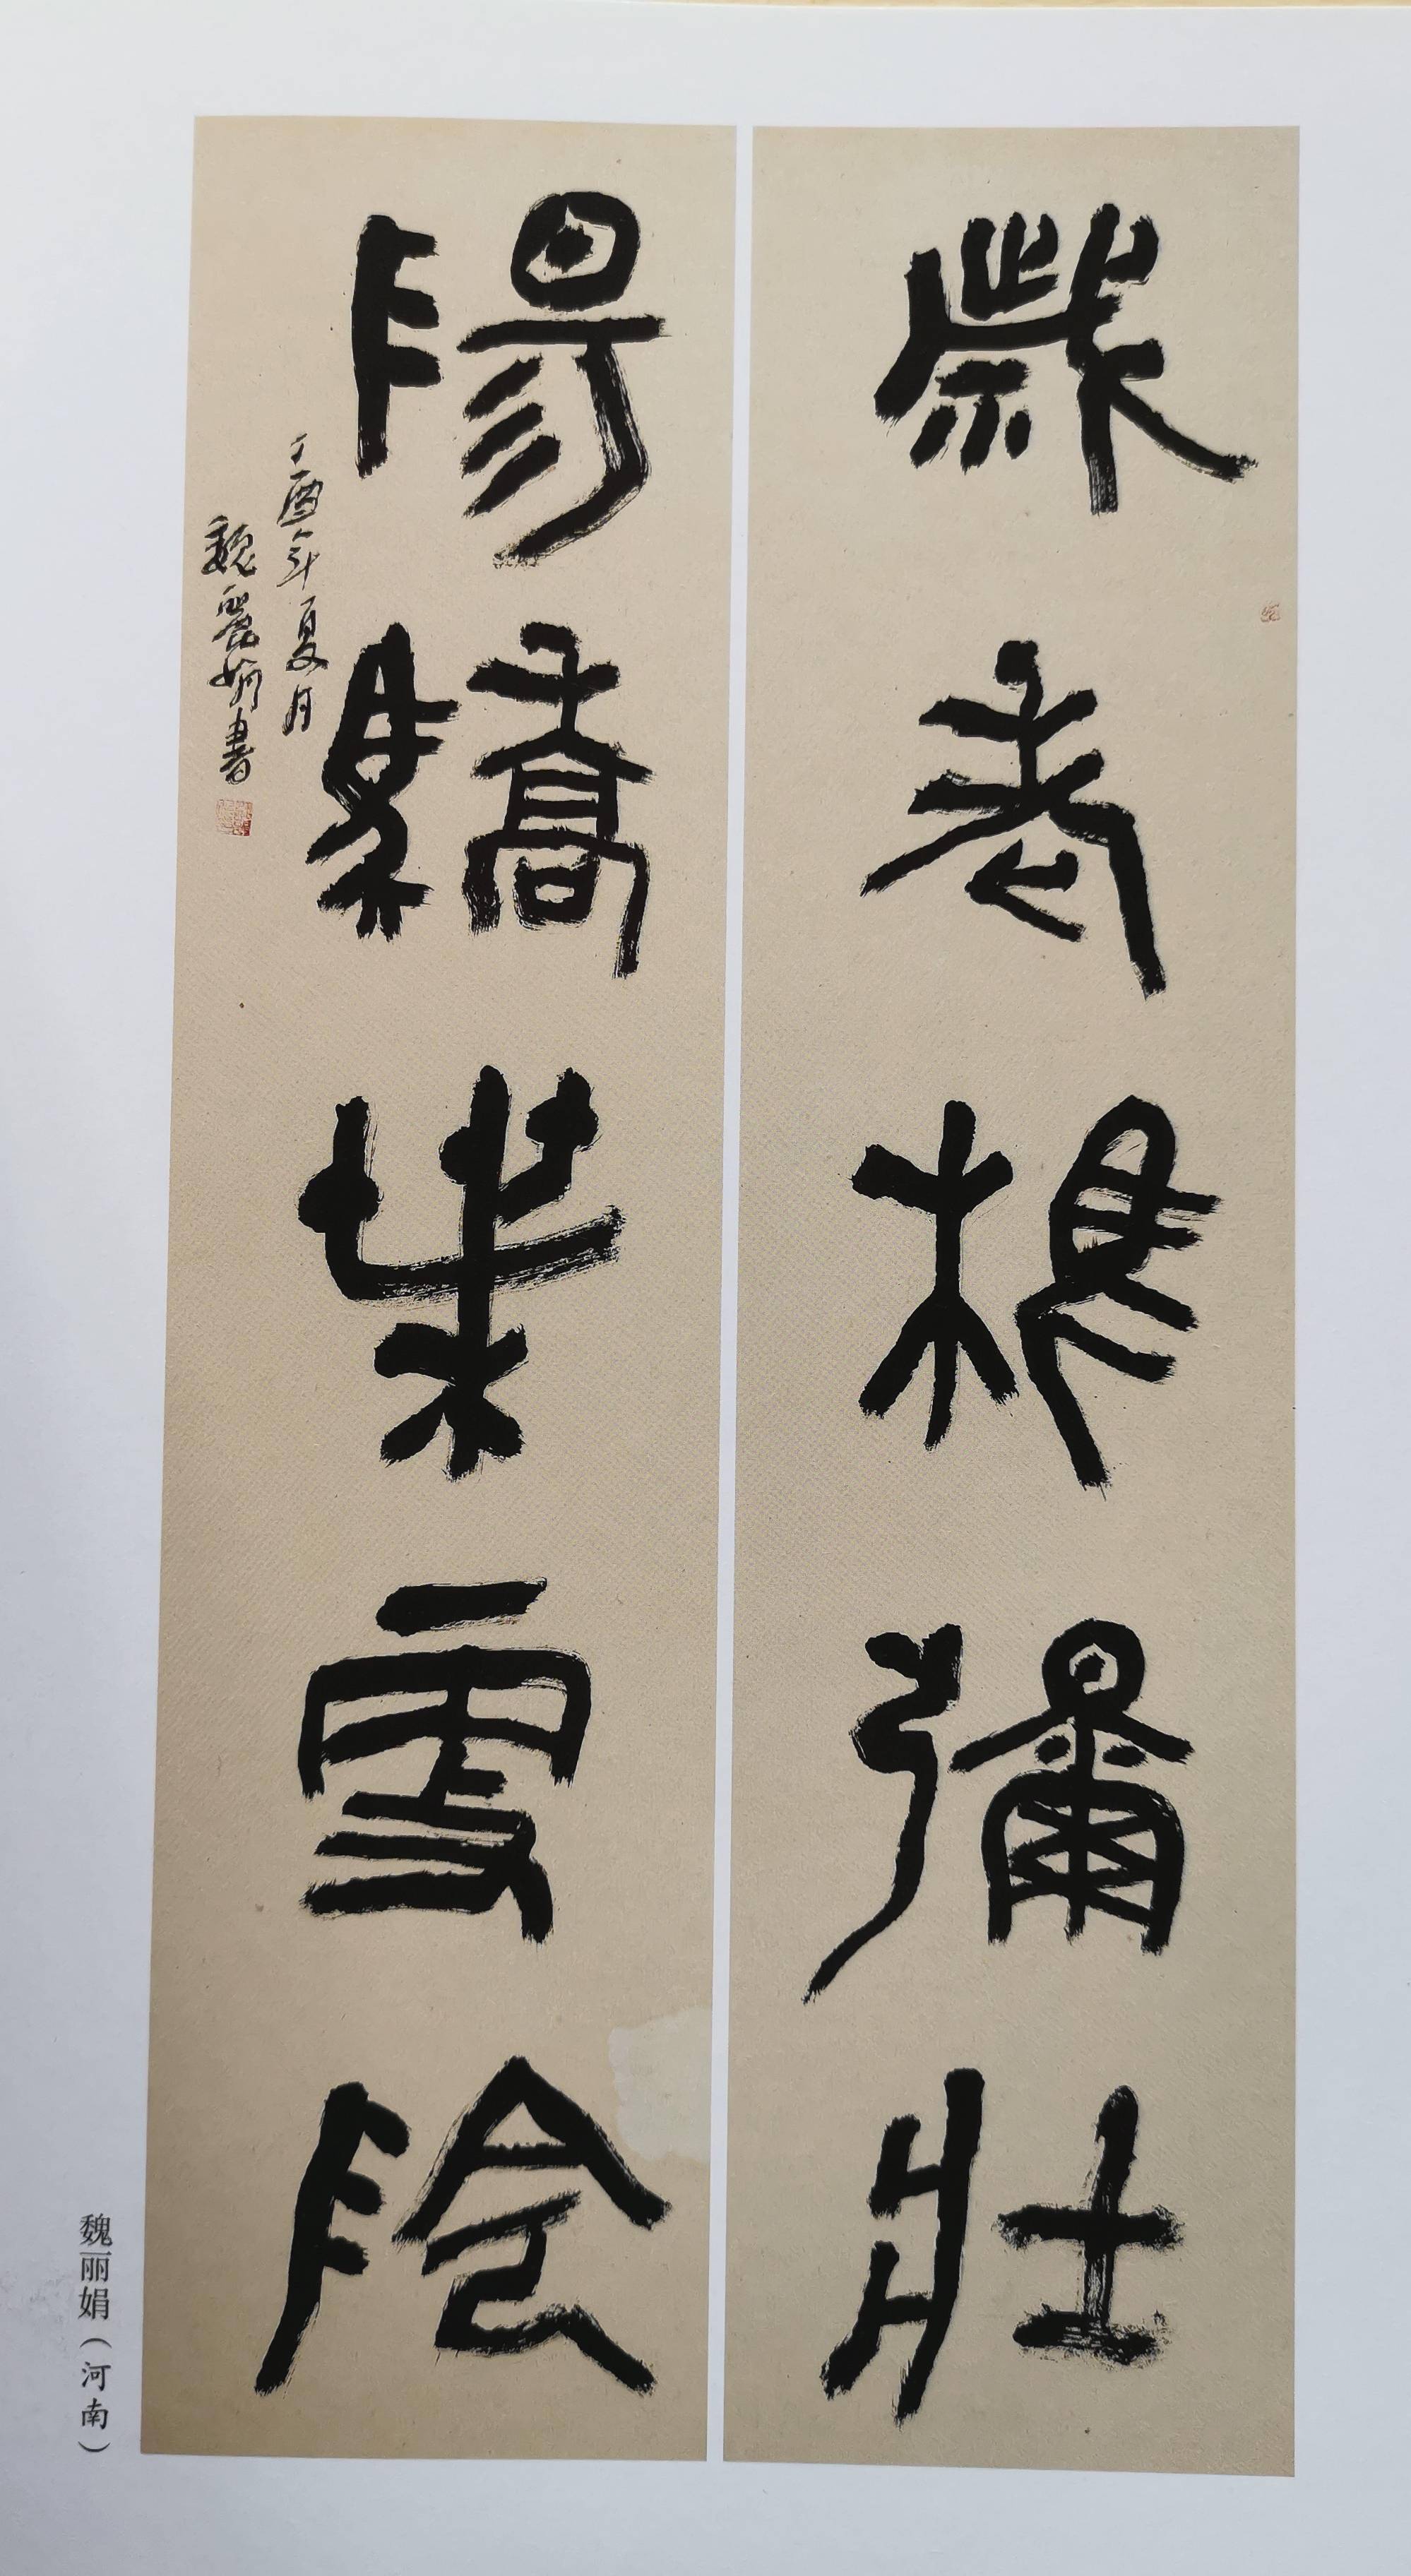 歲老根彌壯
陽驕枼更陰
丁酉年夏月
魏麗娟書
魏丽娟（河南）